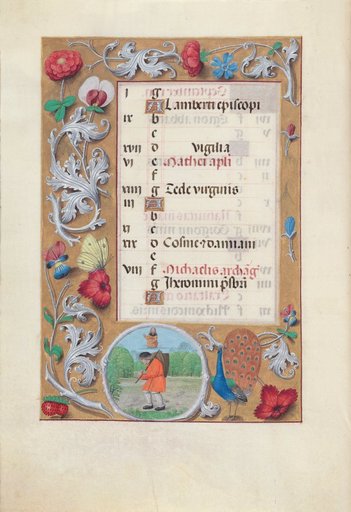 i g
A Lamberti episcopi
ix b
c
xvii d vigilia
vi e Mathei apli
f
xiiii g Tecle virginis
iii A
b
xi c
xix d Cosme z damiani
e
viii f Michaelis archāg
g Iheronimi p̄sbri
A